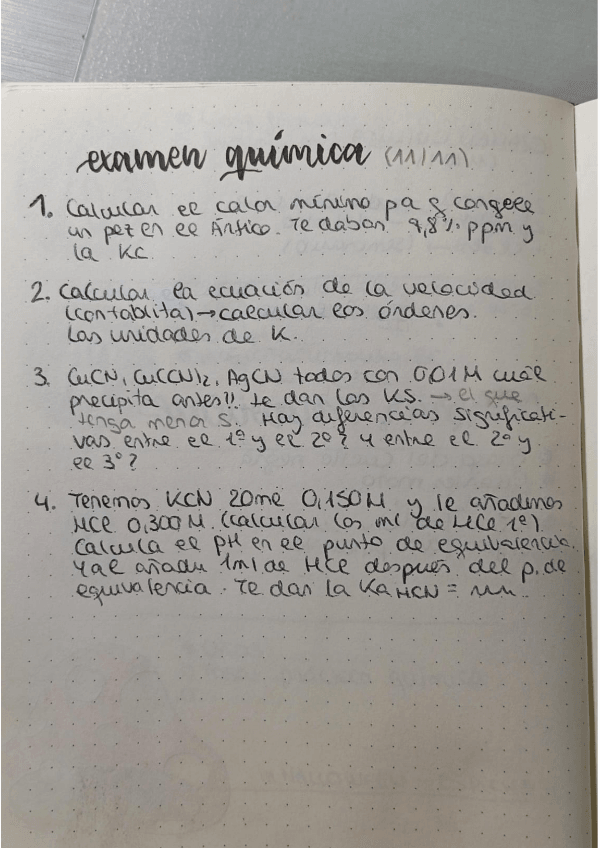 examen química (11/11)
1. Calcular el calor mínimo pa q congele
un pez en el Ártico. Te daban 9,8% ppm y
la Kc
2. Calcular la ecuación de la velocidad
(con tablita) → calcular los órdenes.
Las unidades de K.
3. CuCN, Cu(CN)2, AgCN todos con 0,01M cuál
precipita antes!! te dan las KS. → el que
tenga menor S. Hay diferencias significati-
vas entre el 1º y el 2º? Y entre el 2º y
el 3º?
4. Tenemos KCN 20ml 0,150M y le añadimos
HCl 0,300M. (calcular los ml de HCl 1º)
Calcula el pH en el punto de equivalencia.
Y al añadir 1ml de HCl después del p. de
equivalencia. Te dan la Ka HCN =